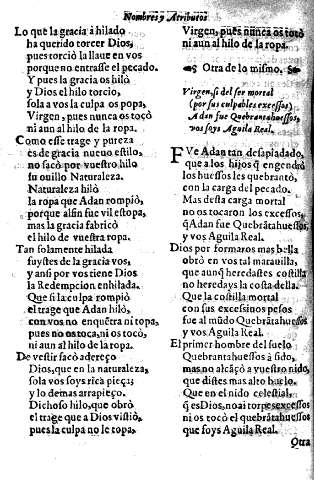 Nombres y Atributos
Lo que la gracia à hilado
ha querido torcer Dios,
pues torciò la llaue en vos
porque no entrasse el pecado.
Y pues la gracia os hilò
y Dios el hilo torcio,
sola a vos la culpa os popa,
Virgen, pues nunca os tocò
ni aun al hilo de la ropa.
Como esse trage y pureza
es de gracia nueuo estilo,
no sacò por vuestro hilo
su ouillo Naturaleza.
Naturaleza hilò
la ropa que Adan rompiò,
porque alfin fue vil estopa,
mas la gracia fabricò
el hilo de vuestra ropa.
Tan solamente hilada
fuystes de la gracia vos,
y ansi por vos tiene Dios
la Redempcion enhilada.
Que si la culpa rompiò
el trage que Adan hilò,
con vos no enquẽtra ni topa,
pues no os toca, ni os tocò,
ni aun al hilo de la ropa.
De vestir facò adereço
Dios, que en la naturaleza,
sola vos soys rica pieça;
y lo demas arrapieço.
Dichoso hilo, que obrò
el trage que a Dios vistiò,
pues la culpa no le topa,
Virgen, pues nunca os tocò
ni aun al hilo de la ropa.
Otra de lo mismo.
Virgen, si del ser mortal
(por sus culpables excessos)
Adan fue Quebrantahuessos,
vos soys Aguila Real.
FVe Adan tan desapiadado,
que a los hijos q̃ engendrò
los huessos les quebrantò,
con la carga del pecado.
Mas desta carga mortal
no os tocaron los excessos,
q̃ Adan fue Quebrãtahuessos
y vos Aguila Real.
Dios por formaros mas bella
obrò en vos tal marauilla,
que aunq̃ heredastes costilla
no heredays la costa della.
Que la costilla mortal
con sus excessinos pesos
fue al mũdo Quebrãtahuessos
y vos Aguila Real.
El primer hombre del suelo
Quebrantahuessos à sido,
mas no alcãçò a vuestro nido,
que distes mas alto buelo.
Que en el nido celestial,
q̃ es Dios, no ai torpes excessos
ni os tocò el quebrãtahuessos
que soys Aguila Real.
Otra